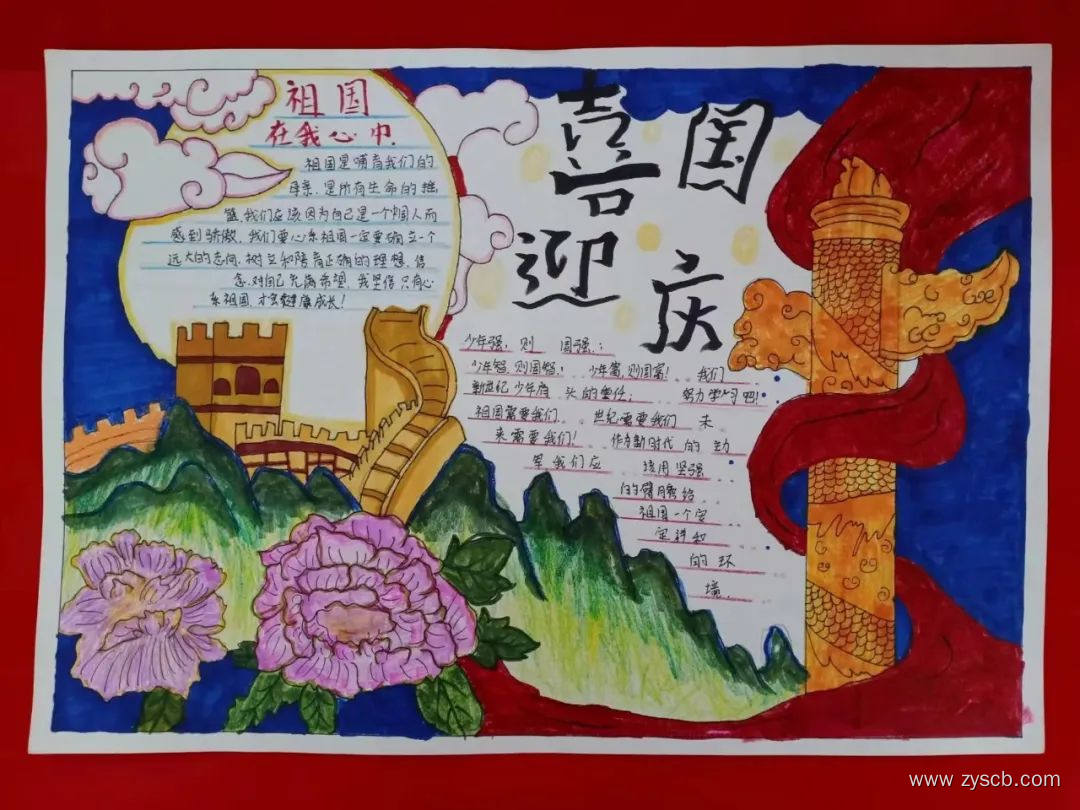 祖国
在我心中.
祖国是哺育我们的
母亲.是所有生命的摇
篮,我们应该因为自己是一个中国人而
感到骄傲.我们要心系祖国一定要确立一个
远大的志向.树立和陪育正确的理想.信
念.对自己充满希望.我坚信只有心
系祖国.才会健康成长!
喜迎
国庆
少年强,则 国强.:
少年智.则国智.: 少年富.则国富! 我们
新世纪少年肩 头的重任: 努力学习吧!
祖国需要我们. 世纪需要我们 未
来需要我们! 作为新时代 的 主力
军 我们应 该用坚强
的臂膀给
祖国一个安
定祥和
的环
境.
www.zyscb.com